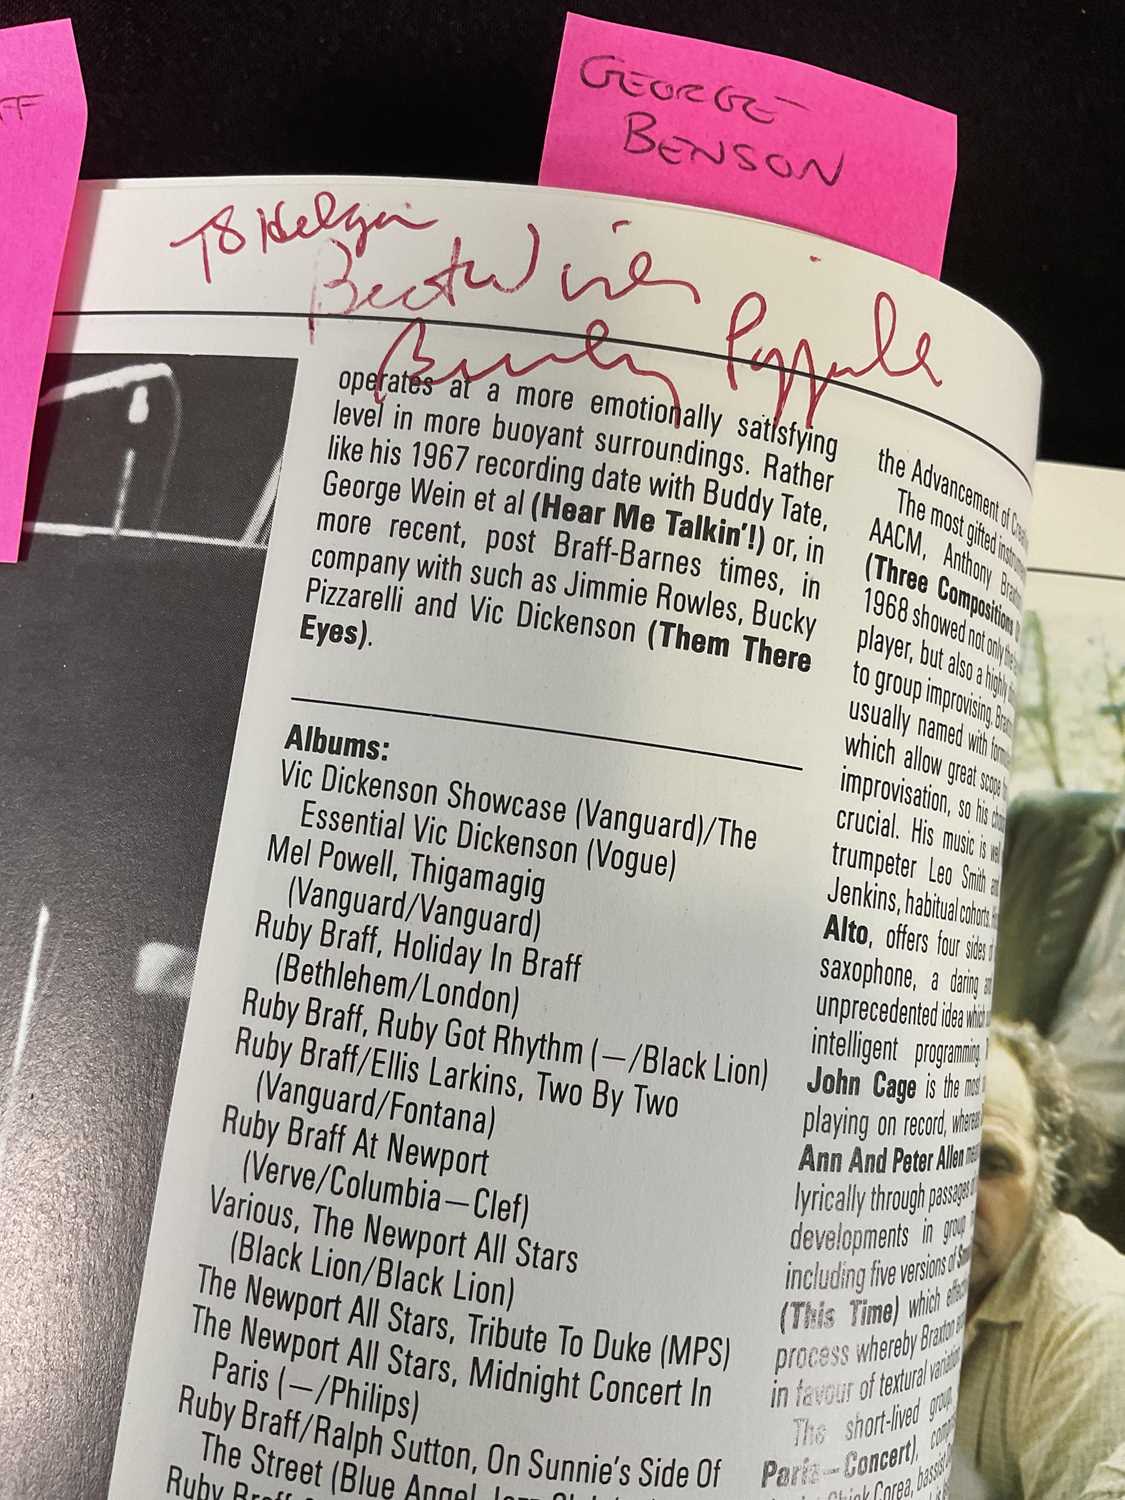 FF
GEORGE
BENSON
To Helge
Best Wishes
operates at a more emotionally satisfying
level in more buoyant surroundings. Rather
like his 1967 recording date with Buddy Tate,
George Wein et al (Hear Me Talkin'!) or, in
more recent, post Braff-Barnes times, in
company with such as Jimmie Rowles, Bucky
Pizzarelli and Vic Dickenson (Them There
Eyes).
Albums:
Vic Dickenson Showcase (Vanguard)/The
Essential Vic Dickenson (Vogue)
Mel Powell, Thigamagig
(Vanguard/Vanguard)
Ruby Braff, Holiday In Braff
(Bethlehem/London)
Ruby Braff, Ruby Got Rhythm (—/Black Lion)
Ruby Braff/Ellis Larkins, Two By Two
(Vanguard/Fontana)
Ruby Braff At Newport
(Verve/Columbia—Clef)
Various, The Newport All Stars
(Black Lion/Black Lion)
The Newport All Stars, Tribute To Duke (MPS)
The Newport All Stars, Midnight Concert In
Paris (—/Philips)
Ruby Braff/Ralph Sutton, On Sunnie's Side Of
The Street (Blue Angel Jazz
Ruby Braff
the Advancement of
The most gifted
AACM, Anthony
(Three Compositions
1968 showed not only the
player, but also a highly
to group improvising.
usually named with
which allow great scope
improvisation, so his
crucial. His music is
trumpeter Leo Smith
Jenkins, habitual cohorts.
Alto, offers four sides
saxophone, a daring
unprecedented idea which
intelligent programming.
John Cage is the most
playing on record, whereas
Ann And Peter Allen
lyrically through passages
developments in group
including five versions of
(This Time) which
process whereby Braxton
in favour of textural
The short-lived group,
Paris—Concert),
Corea, bassist